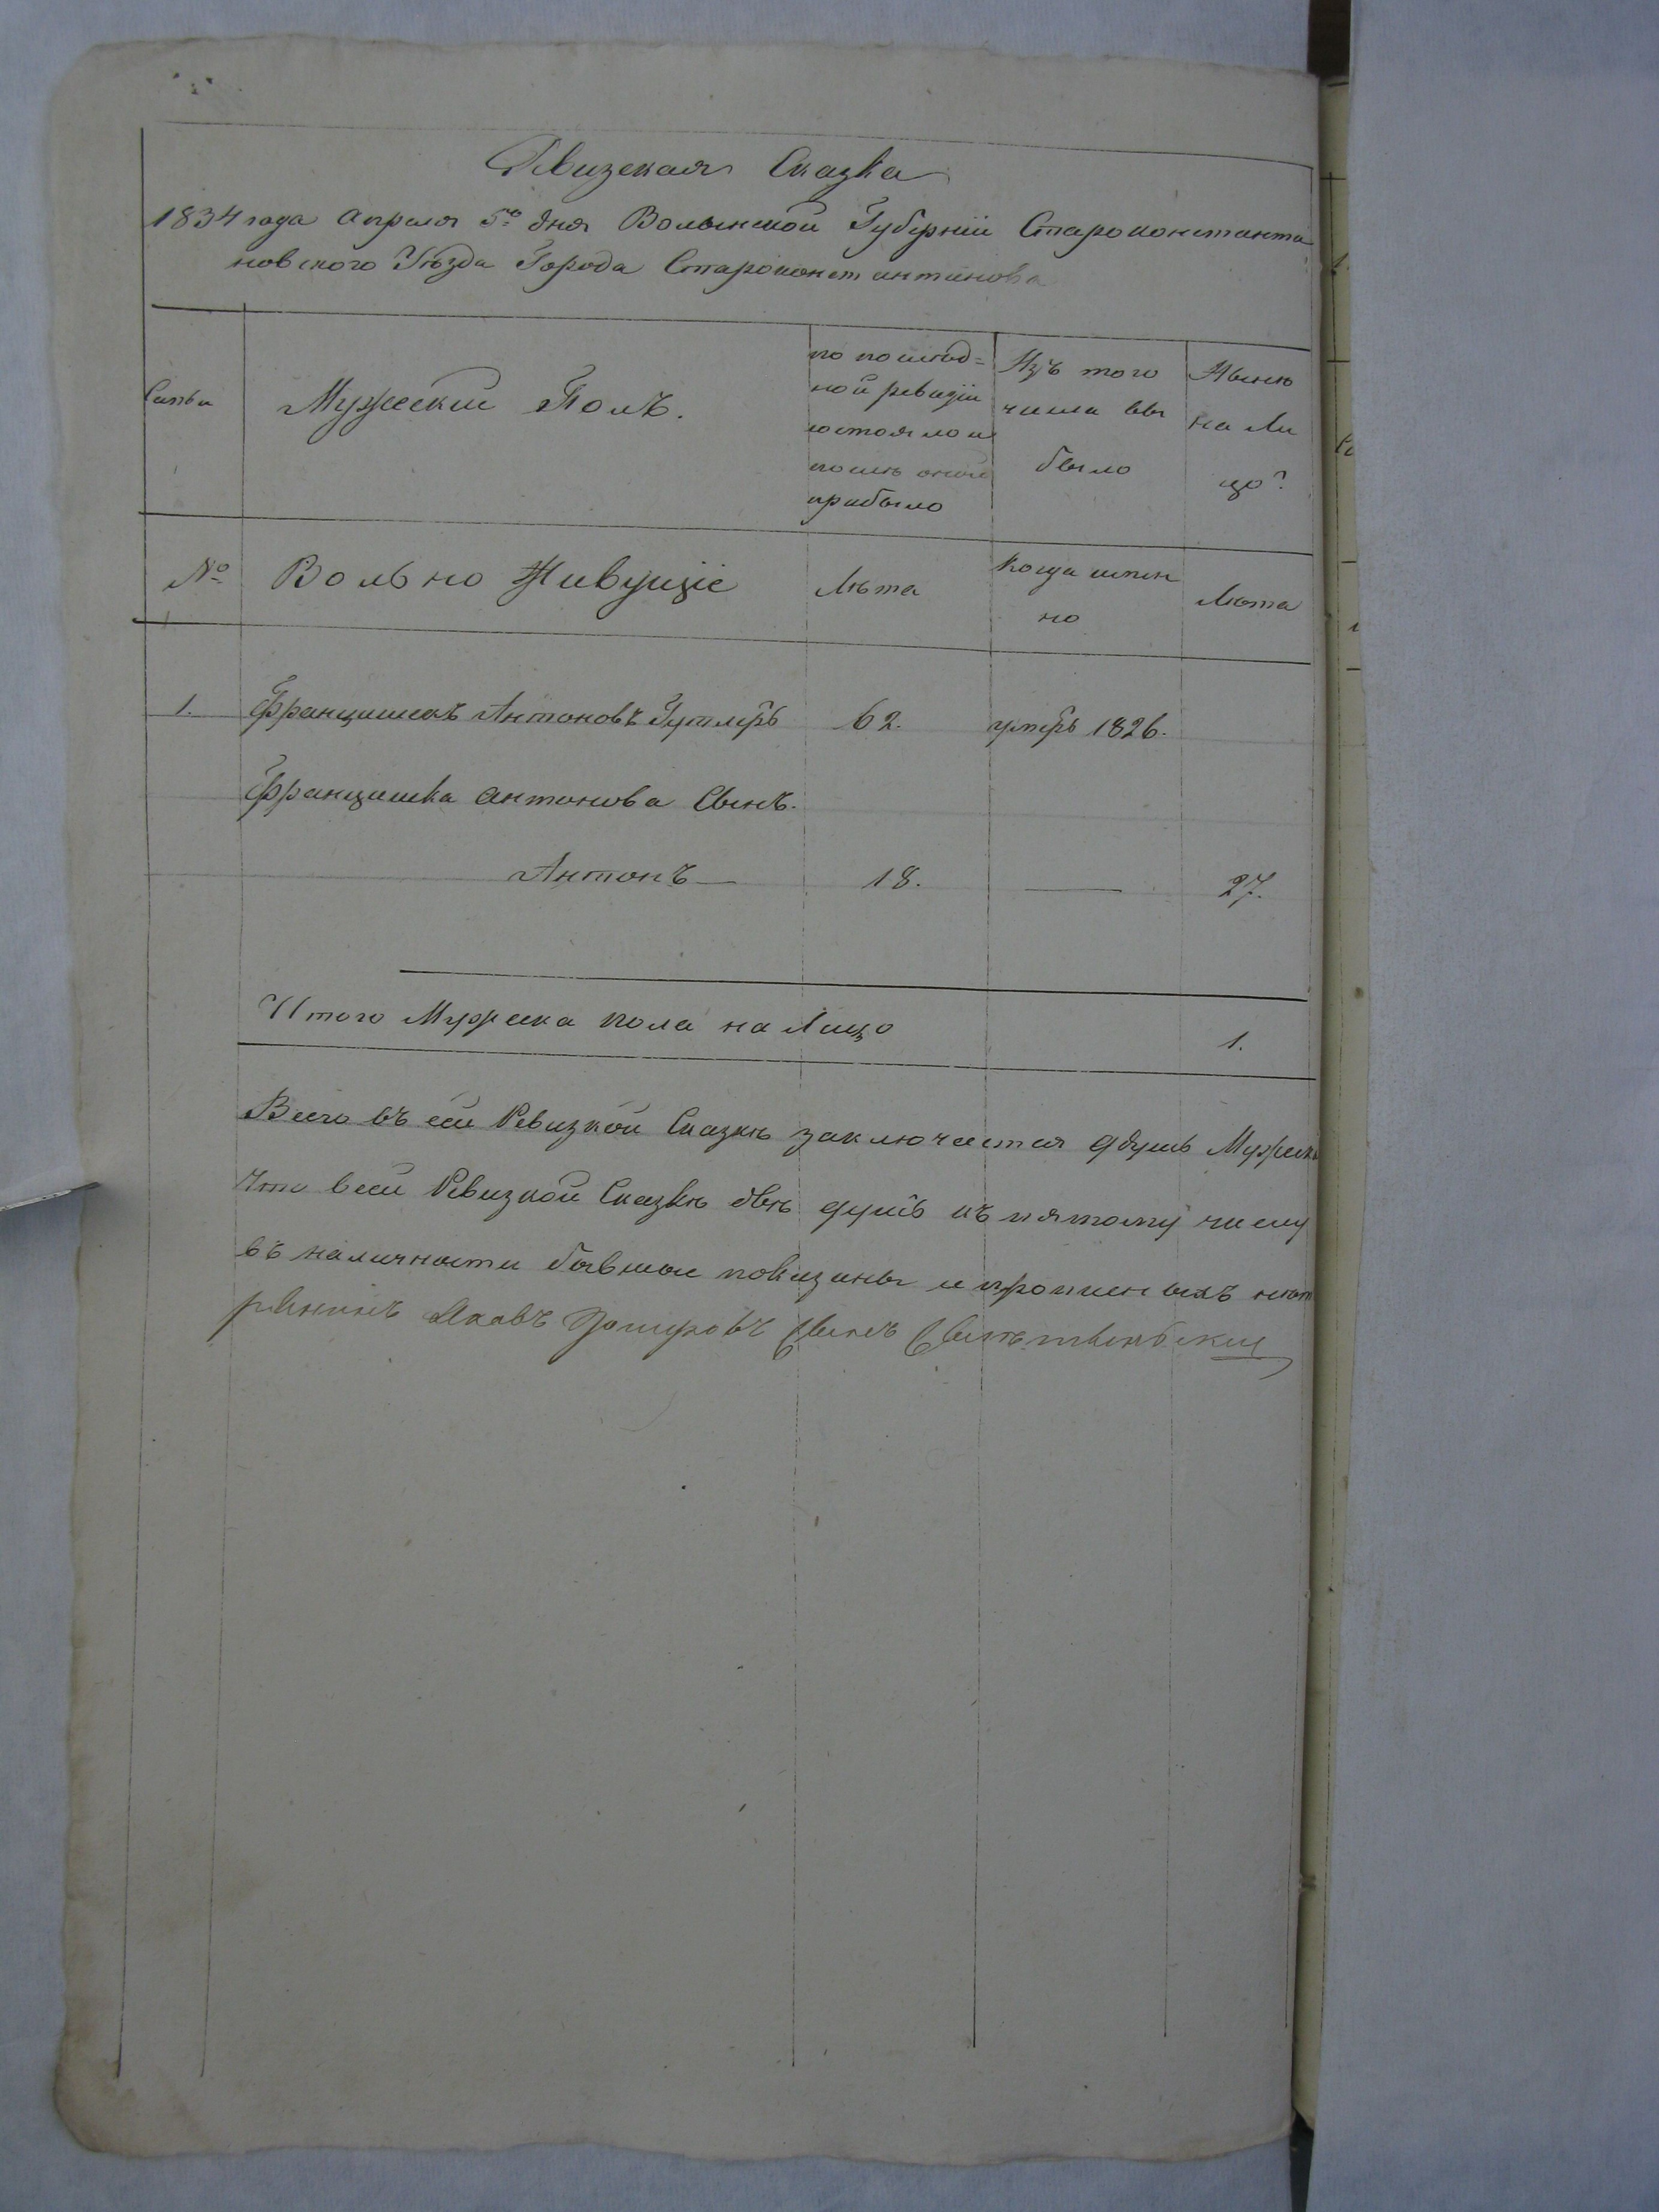 Ревизская Сказка
1834 года Апреля 5го дня Волынской Губернiи Староконстанти
новского Уѣзда Города Староконстантинова
Семьи
Мужеский Полъ.
по послѣд=
ной ревизiи
состояло и
послѣ оной
прибыло
Изъ того
числа вы
было
Нынѣ
на Ли
цо?
№
Вольно Живущiе
Лѣта
Когда имян
но
Лѣта
1. Францишекъ Антоновъ Гутлеръ 62. умеръ 1826.
Францишка Антонова Сынъ.
Антонъ — 18. — 27.
Итого Мужеска пола на Лицо 1.
Всего въ сей Ревизкой Сказкѣ заключается душъ Мужеск
Что в сей Ревизкой Сказкѣ всѣ душъ къ пятому числу
въ наличности бывшые показаны и прописныхъ нѣт
Яковъ Сынъ